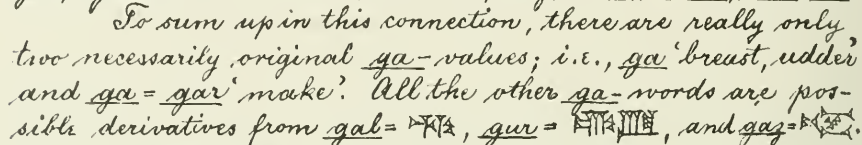 To sum up in this connection, there are really only
two necessarily original ga-values; i.e., ga 'breast, udder'
and ga = gar 'make'. All the other ga-words are pos-
sible derivatives from gal = , gur = , and gaz = .